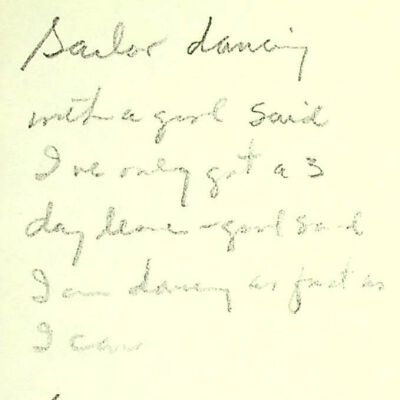 Sailor dancing
with a girl said
I've only got a 3
day leave - girl said
I am dancing as fast as
I can